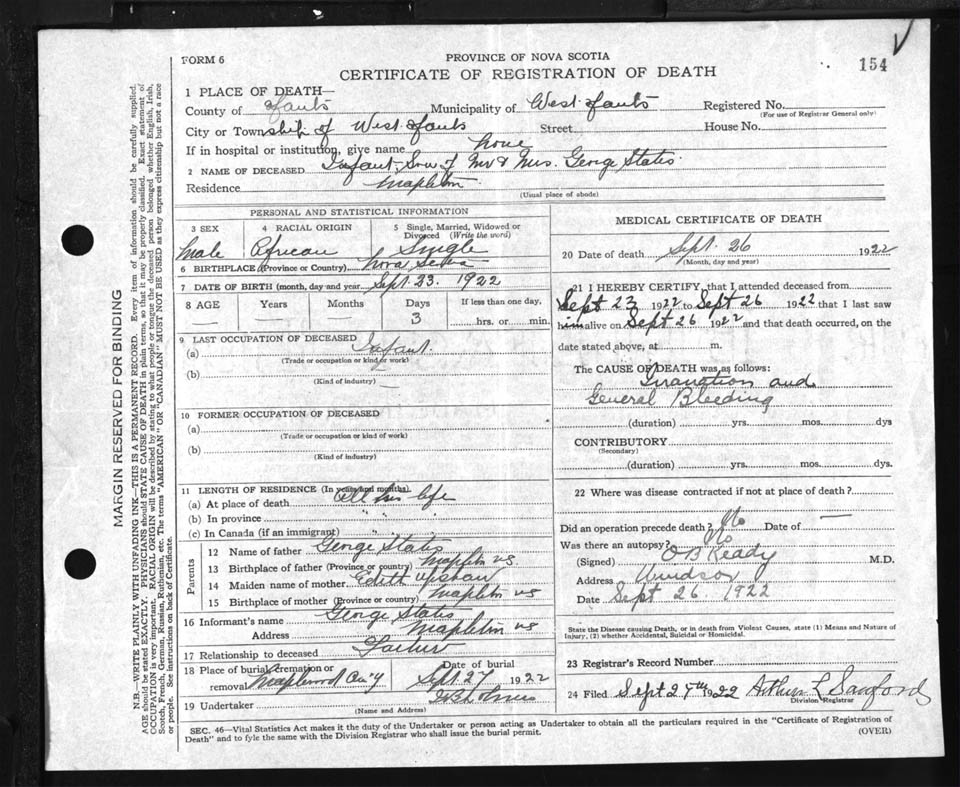 FORM 6
PROVINCE OF NOVA SCOTIA
CERTIFICATE OF REGISTRATION OF DEATH
154
1 PLACE OF DEATH—
County of Hants Municipality of West Hants Registered No.
(For use of Registrar General only)
City or Township of West Hants Street House No.
If in hospital or institution, give name home
2 NAME OF DECEASED Infant Son of Mr & Mrs. George States
Residence Mapleton
(Usual place of abode)
PERSONAL AND STATISTICAL INFORMATION
3 SEX 4 RACIAL ORIGIN 5 Single, Married, Widowed or Divorced (Write the word)
Male African Single
6 BIRTHPLACE (Province or Country) Nova Scotia
7 DATE OF BIRTH (month, day and year) Sept. 23. 1922
8 AGE Years Months Days If less than one day,
— — 3 hrs. or min.
9 LAST OCCUPATION OF DECEASED
(a) Infant
(Trade or occupation or kind of work)
(b) —
(Kind of industry)
10 FORMER OCCUPATION OF DECEASED
(a)
(Trade or occupation or kind of work)
(b)
(Kind of industry)
11 LENGTH OF RESIDENCE (In years and months)
(a) At place of death All his life
(b) In province " " "
(c) In Canada (if an immigrant) " "
Parents
12 Name of father George States
13 Birthplace of father (Province or country) Mapleton NS.
14 Maiden name of mother Edith
15 Birthplace of mother (Province or country) Mapleton NS
16 Informant's name George States
Address Mapleton NS
17 Relationship to deceased Father
18 Place of burial, cremation or removal Maplewood Date of burial Sept 27 1922
19 Undertaker
(Name and Address)
MEDICAL CERTIFICATE OF DEATH
20 Date of death Sept. 26 1922
(Month, day and year)
21 I HEREBY CERTIFY, that I attended deceased from
Sept 23 1922 to Sept 26 1922 that I last saw
him alive on Sept 26 1922 and that death occurred, on the
date stated above, at m.
The CAUSE OF DEATH was as follows:
Inanation and
General Bleeding
(duration) yrs. mos. dys
CONTRIBUTORY
(Secondary)
(duration) yrs. mos. dys.
22 Where was disease contracted if not at place of death?
Did an operation precede death? No Date of —
Was there an autopsy? No
(Signed) O B Keddy M.D.
Address Windsor
Date Sept 26. 1922
State the Disease causing Death, or in death from Violent Causes, state (1) Means and Nature of
Injury, (2) whether Accidental, Suicidal or Homicidal.
23 Registrar's Record Number
24 Filed Sept 27th 1922 Arthur L Sanford
Division Registrar
SEC. 46—Vital Statistics Act makes it the duty of the Undertaker or person acting as Undertaker to obtain all the particulars required in the "Certificate of Registration of
Death" and to fyle the same with the Division Registrar who shall issue the burial permit.
(OVER)
MARGIN RESERVED FOR BINDING
N.B.—WRITE PLAINLY WITH UNFADING INK—THIS IS A PERMANENT RECORD. Every item of information should be carefully supplied.
AGE should be stated EXACTLY. PHYSICIANS should STATE CAUSE OF DEATH in plain terms, so that it may be properly classified. Exact statement of
OCCUPATION is very important. RACIAL ORIGIN will be described by stating to what people or tongue the deceased person belonged whether English, Irish,
Scotch, French, German, Russian, Ruthenian, etc. The terms "AMERICAN" OR "CANADIAN" MUST NOT BE USED as they express citizenship but not a race
or people. See instructions on back of Certificate.